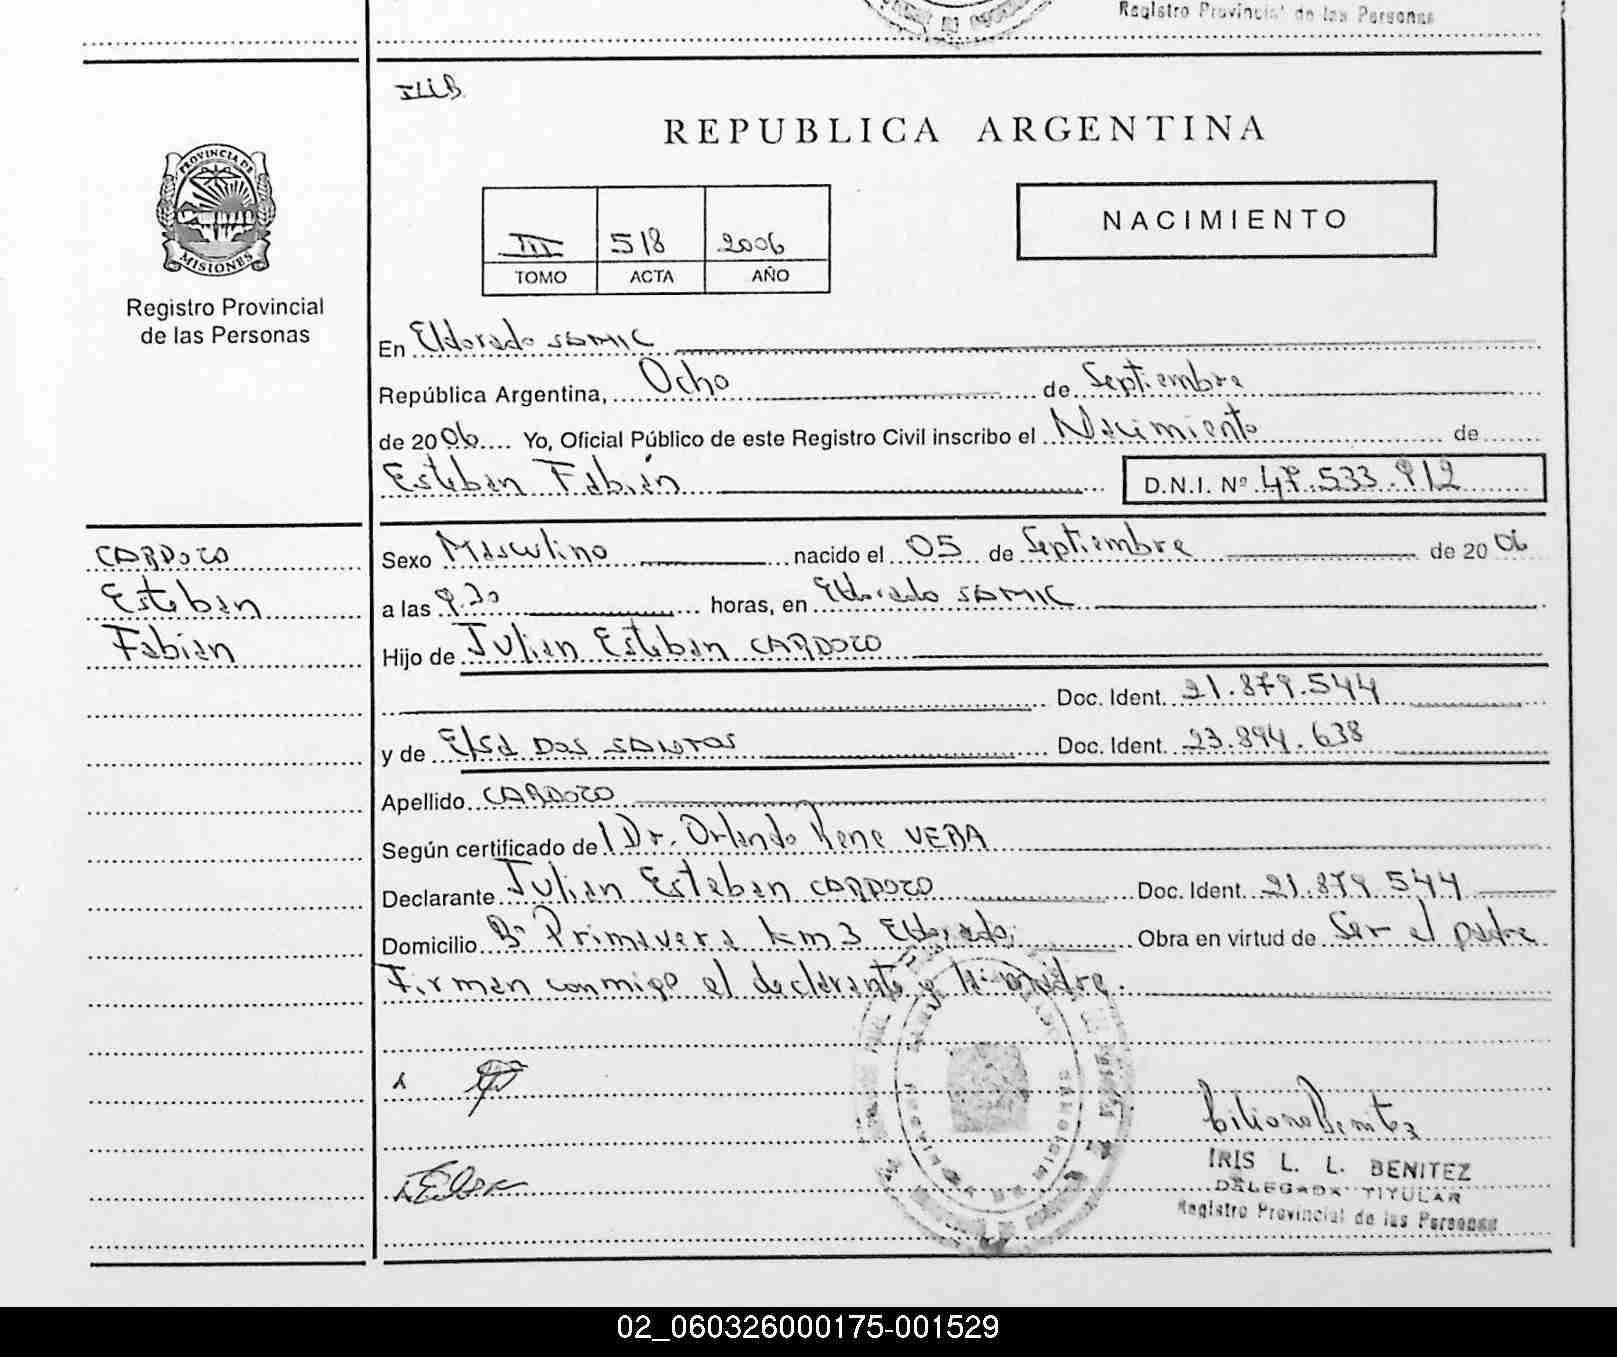 Registro Provincial de las Personas
ILLB
REPUBLICA ARGENTINA
PROVINCIA DE
MISIONES
Registro Provincial
de las Personas
III 518 2006
TOMO ACTA AÑO
NACIMIENTO
En Eldorado SAMIC
República Argentina, Ocho de Septiembre
de 2006 Yo, Oficial Público de este Registro Civil inscribo el Nacimiento de
Esteban Fabián D.N.I. Nº 47.533.912
CARDOZO
Esteban
Fabian
Sexo Masculino nacido el 05 de Septiembre de 2006
a las 9.30 horas, en Eldorado SAMIC
Hijo de Julian Esteban CARDOZO
Doc. Ident. 21.879.544
y de Elsa DOS SANTOS Doc. Ident. 23.894.638
Apellido CARDOZO
Según certificado del Dr. Orlando Rene VERA
Declarante Julian Esteban CARDOZO Doc. Ident. 21.879.544
Domicilio Bº Primavera km3 Eldorado; Obra en virtud de Ser el padre
Firman conmigo el declarante y la madre.
IRIS L. L. BENITEZ
DELEGADA TITULAR
Registro Provincial de las Personas
02_060326000175-001529